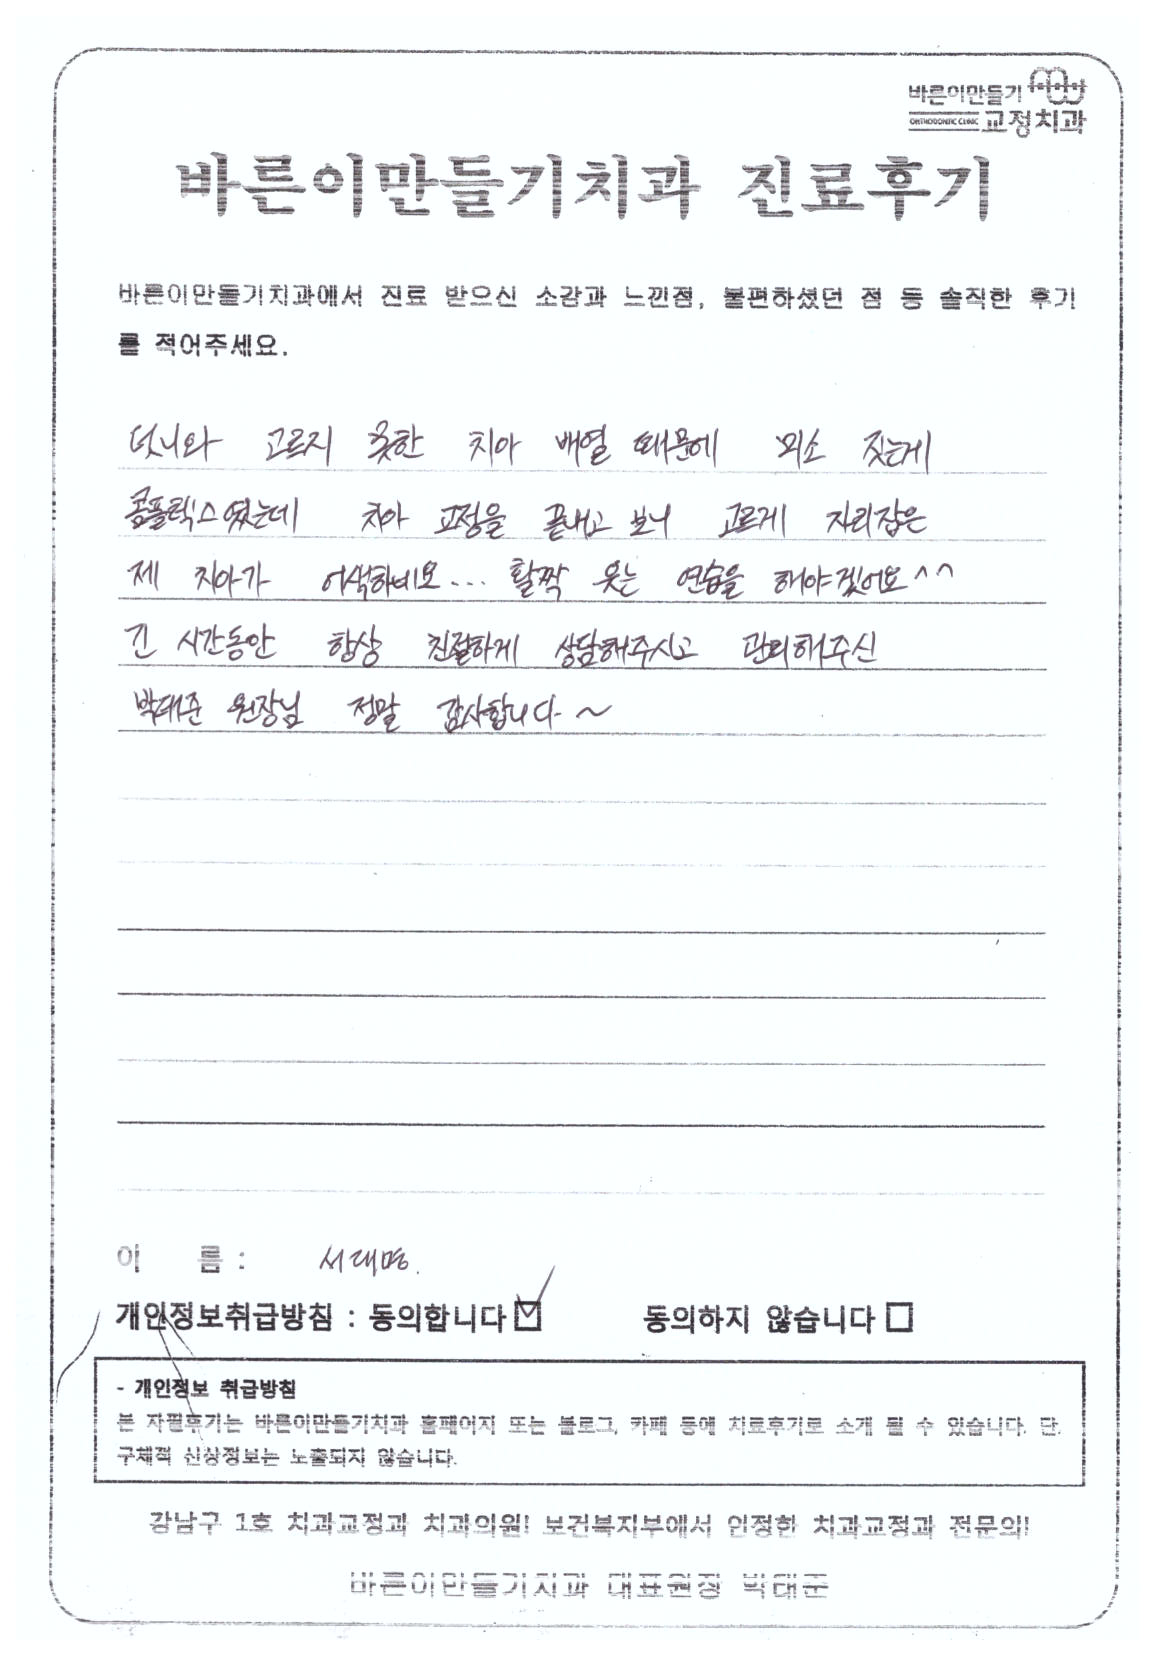 바른이만들기
ORTHODONTIC CLINIC 교정치과
바른이만들기치과 진료후기
바른이만들기치과에서 진료 받으신 소감과 느낀점, 불편하셨던 점 등 솔직한 후기
를 적어주세요.
덧니와 고르지 못한 치아 배열 때문에 미소 짓는게
콤플렉스였는데 치아 교정을 끝내고 보니 고르게 자리잡은
제 치아가 어색하네요... 활짝 웃는 연습을 해야겠어요^^
긴 시간동안 항상 친절하게 상담해주시고 관리해주신
박태준 원장님 정말 감사합니다~
이 름 : 서대명.
개인정보취급방침 : 동의합니다 ☑ 동의하지 않습니다 □
- 개인정보 취급방침
본 자필후기는 바른이만들기치과 홈페이지 또는 블로그, 카페 등에 치료후기로 소개 될 수 있습니다. 단,
구체적 신상정보는 노출되지 않습니다.
강남구 1호 치과교정과 치과의원! 보건복지부에서 인정한 치과교정과 전문의!
바른이만들기치과 대표원장 박태준